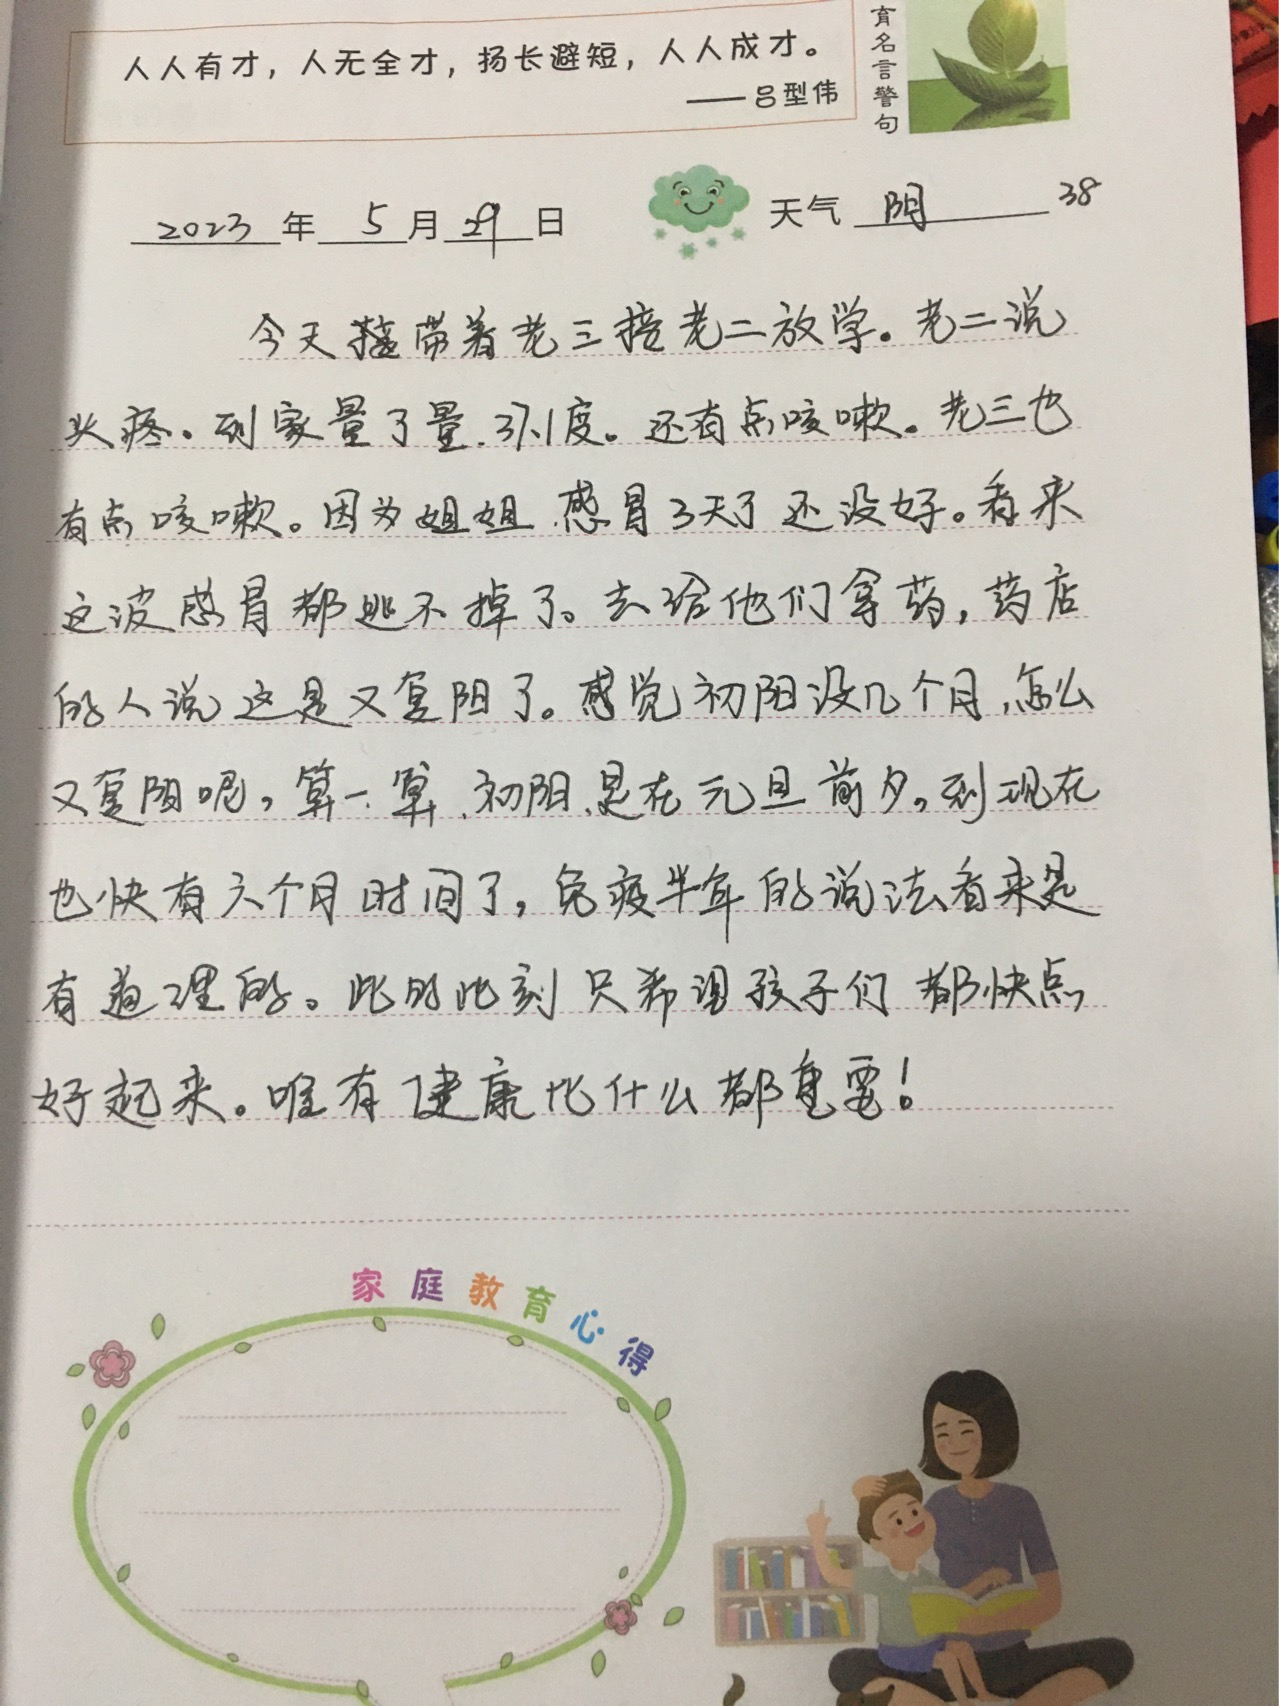 人人有才，人无全才，扬长避短，人人成才。
——吕型伟
育名言警句
2023年 5月29日 天气 阴 38
今天 带着老三接老二放学。老二说
头疼。到家量了量.37.1度。还有点咳嗽。老三也
有点咳嗽。因为姐姐.感冒3天了还没好。看来
这波感冒都逃不掉了。去给他们拿药，药店
的人说这是又复阳了。感觉初阳没几个月，怎么
又复阳呢，算一算.初阳是在元旦前夕。到现在
也快有六个月时间了，免疫半年的说法看来是
有道理的。此时此刻只希望孩子们都快点
好起来。唯有健康比什么都重要！
家庭教育心得